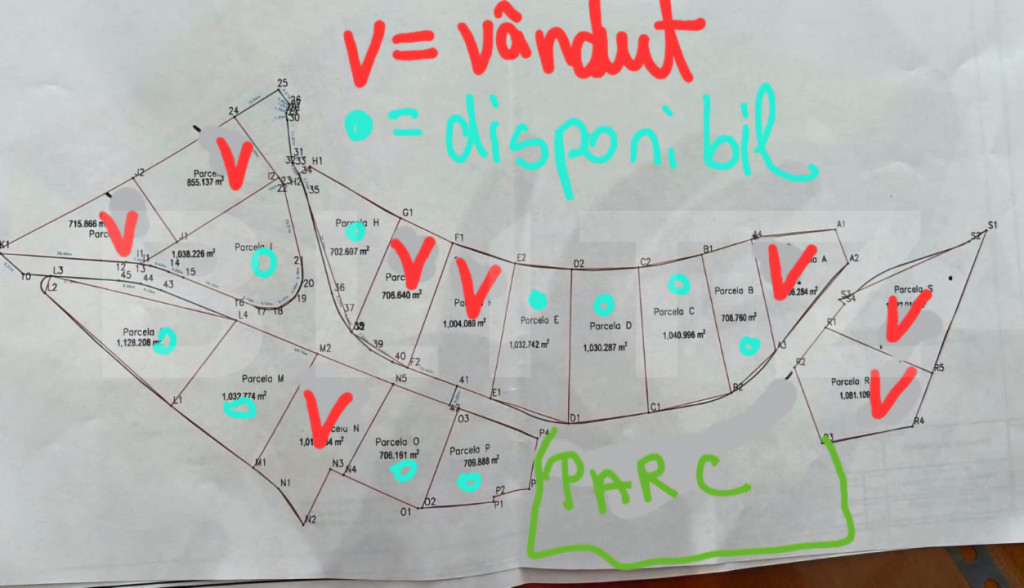 V = vândut
= disponibil
25
24
30
31
32 33 H1
34
35
J2
Parce
855.137 m²
I2
23 H2
22
Parcela H
702.697 m²
G1
F1
715.866 m²
Parc
K1
J1
1,038.226 m²
Parcela I
I1
12 13 14 15
45 44 43
L3
L2
21
20
19
17 18
16
L4
36
37
39
40
F2
Parc
706.640 m²
1,004.089 m²
E2
D2
C2
B1
A1
A2
A3
Parcela E
1,032.742 m²
Parcela D
1,030.287 m²
Parcela C
1,040.996 m²
Parcela B
708.760 m²
A
.284 m²
S2
S1
Parcela S
R1
R2
R5
Parcela R
1,081.109
R4
R3
Parcela
1,128.206 m²
M2
N5
41
42
E1
D1
C1
B2
L1
Parcela M
1,032.774 m²
O3
P4
Parcela O
706.161 m²
Parcela P
709.888 m²
M1
N1
N2
N3 N4
O1
O2
P2
P1
PARC
BLITZ